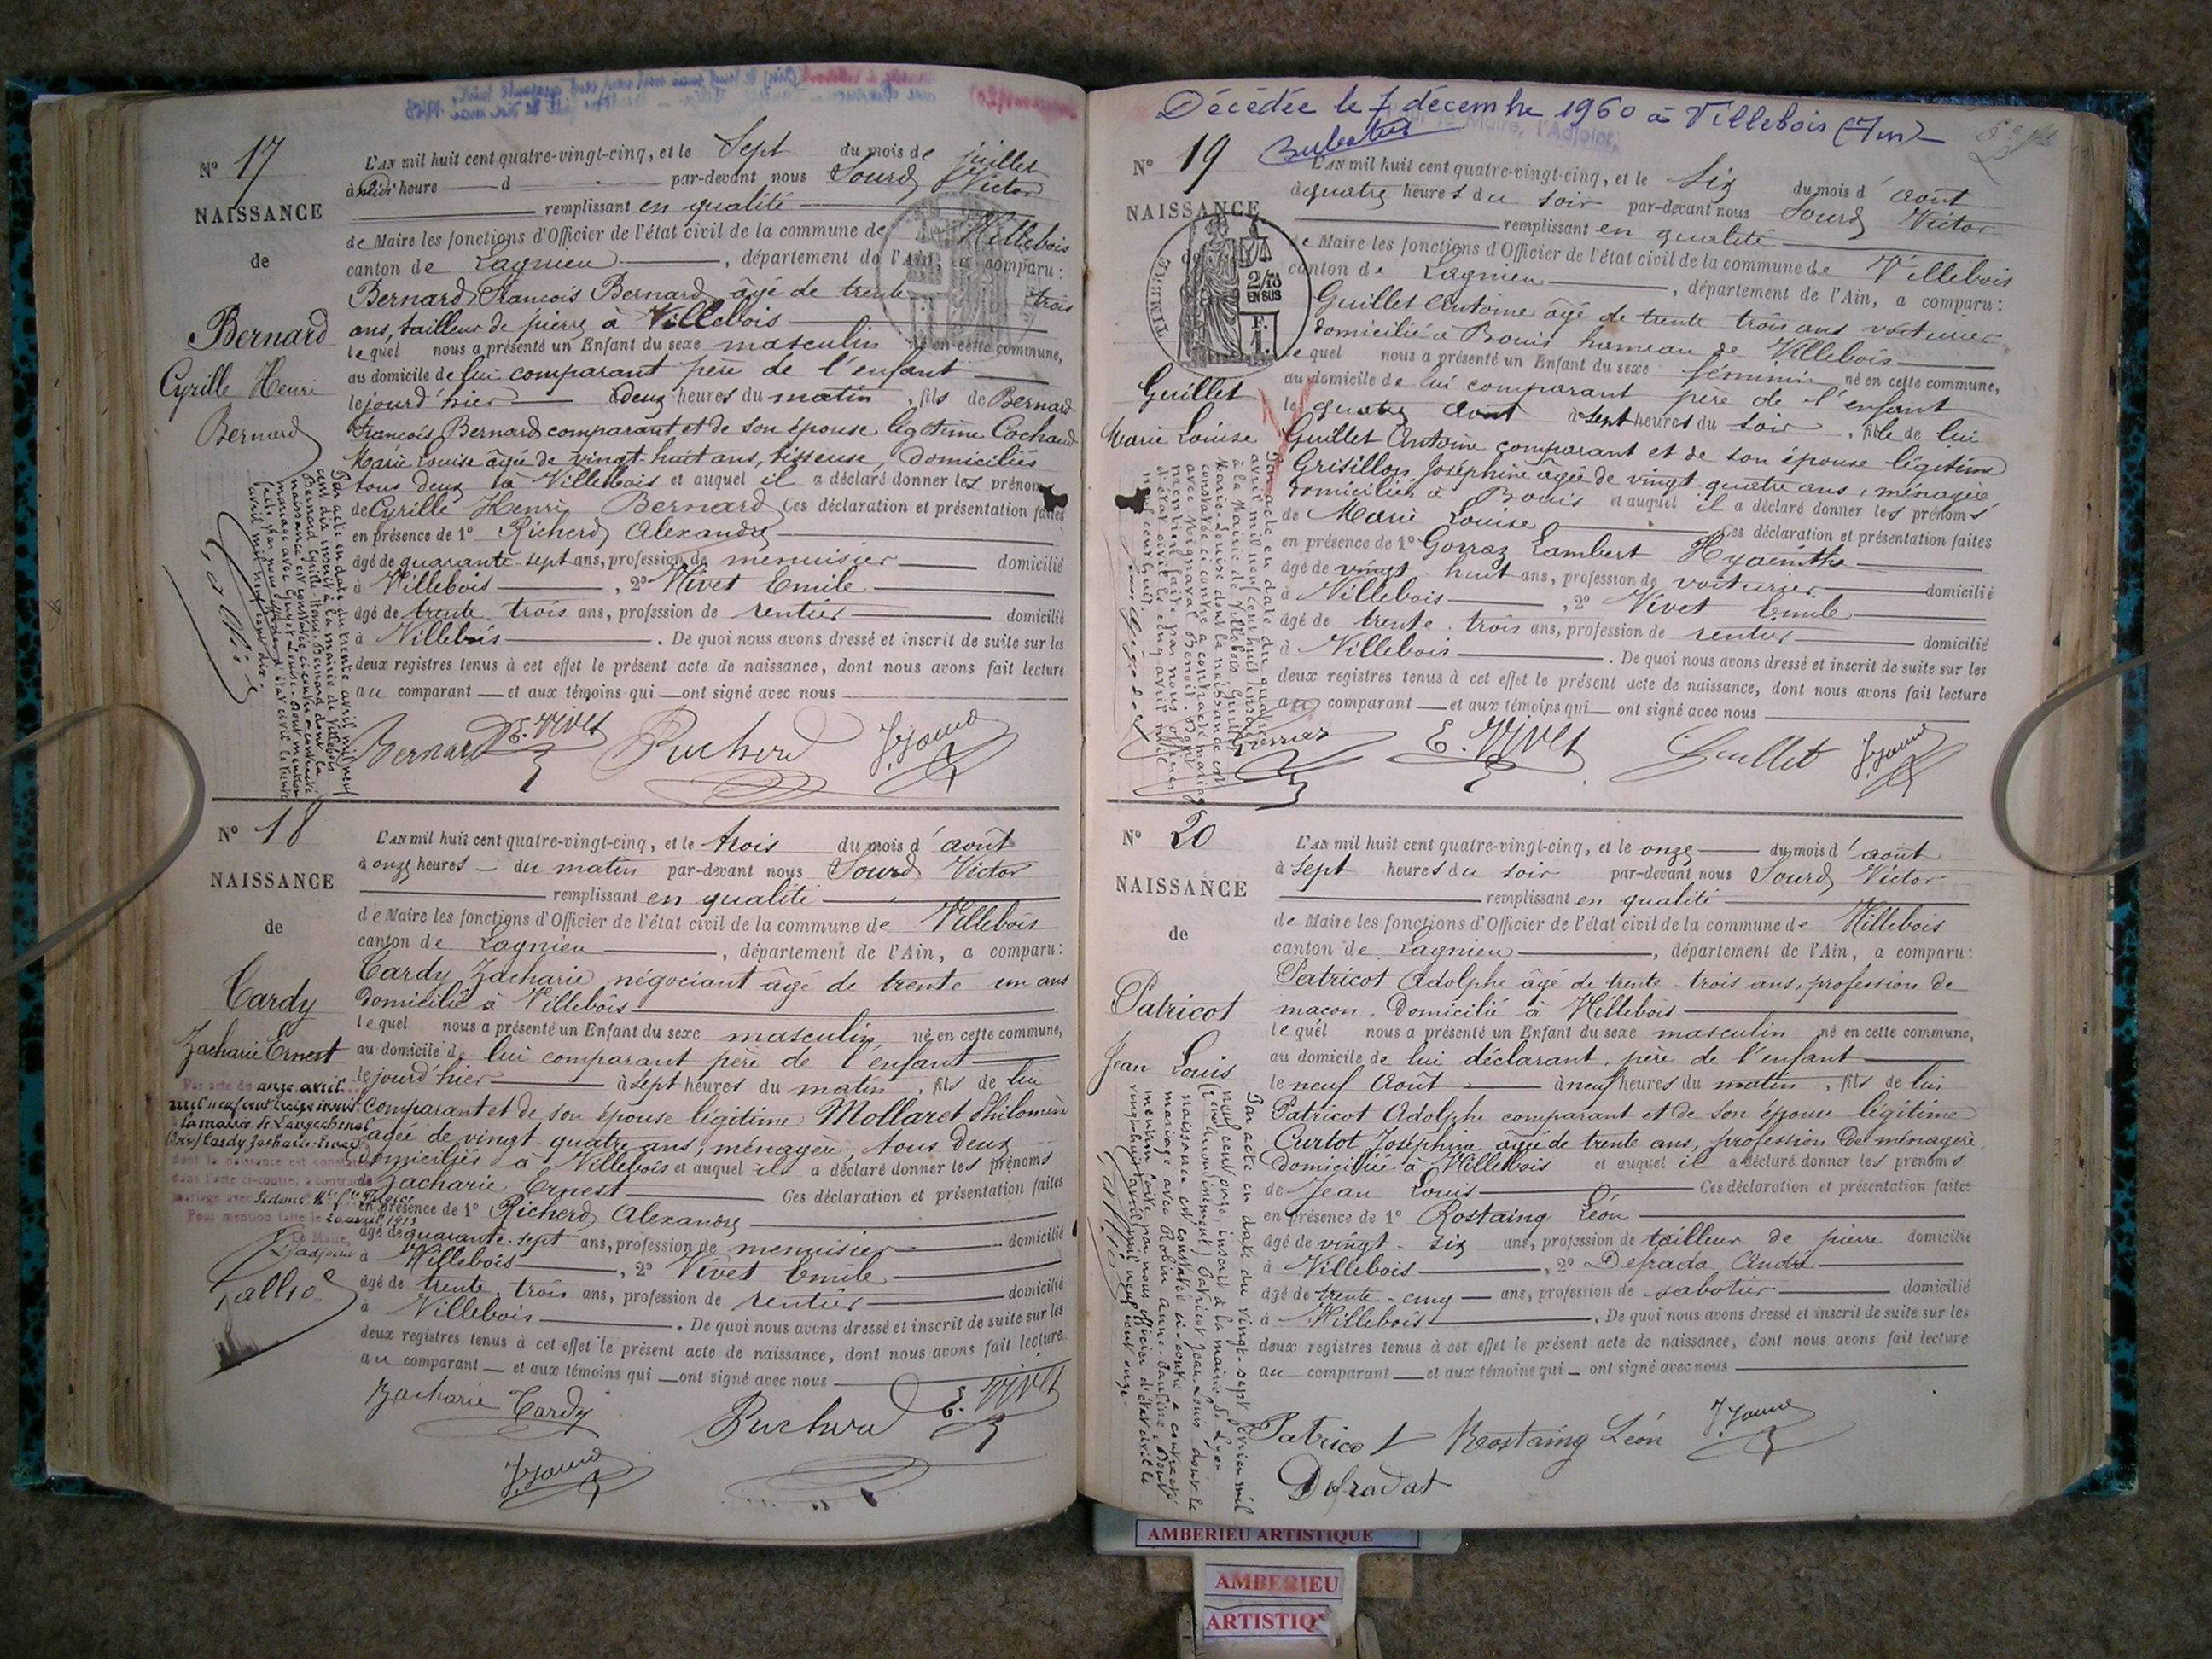 N° 17
NAISSANCE
de
Bernard
Cyrille Henri
Bernard
L'AN mil huit cent quatre-vingt-cinq, et le Sept du mois de juillet
à midi heure d par-devant nous Sourd Victor
remplissant en qualité
de Maire les fonctions d'Officier de l'état civil de la commune de Villebois
canton de Lagnieu, département de l'Ain, a comparu:
Bernard François Bernard âgé de trente trois
ans, tailleur de pierre à Villebois
lequel nous a présenté un Enfant du sexe masculin né en cette commune,
au domicile de lui comparant père de l'enfant
le jourd'hier à deux heures du matin, fils de Bernard
François Bernard comparant et de son épouse légitime Cochand
Marie Louise âgée de vingt-huit ans, tisseuse, domiciliés
tous deux à Villebois et auquel il a déclaré donner les prénoms
de Cyrille Henri Bernard Ces déclaration et présentation faites
en présence de 1° Richerd Alexandre
âgé de quarante-sept ans, profession de menuisier domicilié
à Villebois, 2° Vivet Emile
âgé de trente trois ans, profession de rentier domicilié
à Villebois. De quoi nous avons dressé et inscrit de suite sur les
deux registres tenus à cet effet le présent acte de naissance, dont nous avons fait lecture
au comparant et aux témoins qui ont signé avec nous
Par acte en date du trente avril mil neuf
cent dix inscrit à la mairie de Villebois
Bernard Cyrille-Henri-Bernard dont la
naissance est constatée ci-contre a contracté
mariage avec Guyot Louise. Dont mention
faite par nous officier d'état civil le trente
avril mil neuf cent dix.
Bernard E. Vivet Richerd
N° 18
NAISSANCE
de
Cardy
Zacharie Ernest
L'AN mil huit cent quatre-vingt-cinq, et le trois du mois d'août
à onze heures du matin par-devant nous Sourd Victor
remplissant en qualité
de Maire les fonctions d'Officier de l'état civil de la commune de Villebois
canton de Lagnieu, département de l'Ain, a comparu:
Cardy Zacharie négociant âgé de trente un ans
domicilié à Villebois
lequel nous a présenté un Enfant du sexe masculin, né en cette commune,
au domicile de lui comparant père de l'enfant
le jourd'hier à sept heures du matin, fils de lui
comparant et de son épouse légitime Mollaret Philomène
âgée de vingt-quatre ans, ménagère, tous deux
domiciliés à Villebois et auquel il a déclaré donner les prénoms
de Zacharie Ernest Ces déclaration et présentation faites
en présence de 1° Richerd Alexandre
âgé de quarante-sept ans, profession de menuisier domicilié
à Villebois, 2° Vivet Emile
âgé de trente trois ans, profession de rentier domicilié
à Villebois. De quoi nous avons dressé et inscrit de suite sur les
deux registres tenus à cet effet le présent acte de naissance, dont nous avons fait lecture
au comparant et aux témoins qui ont signé avec nous
Par acte du onze avril
mil neuf cent treize inscrit
la mairie de
Cardy Zacharie-Ernest
dont la naissance est constatée
dans l'acte ci-contre, a contracté
mariage avec
Pour mention faite le 20 avril 1913
Le Maire,
L'adjoint
Zacharie Cardy Richerd E. Vivet
Décédée le 7 décembre 1960 à Villebois (Ain)
Le Maire, l'Adjoint,
N° 19
NAISSANCE
de
TIMBRE
2/10
EN SUS
F.
1.
Guillet
Marie Louise
L'AN mil huit cent quatre-vingt-cinq, et le Six du mois d'août
à quatre heures du soir par-devant nous Sourd Victor
remplissant en qualité
de Maire les fonctions d'Officier de l'état civil de la commune de Villebois
canton de Lagnieu, département de l'Ain, a comparu:
Guillet Antoine âgé de trente trois ans voiturier
domicilié à Bouis hameau de Villebois
lequel nous a présenté un Enfant du sexe féminin né en cette commune,
au domicile de lui comparant père de l'enfant
le quatre Août à sept heures du soir, fille de lui
Guillet Antoine comparant et de son épouse légitime
Grisillon Joséphine âgée de vingt-quatre ans, ménagère
domiciliée à Bouis et auquel il a déclaré donner les prénoms
de Marie Louise Ces déclaration et présentation faites
en présence de 1° Gorraz Lambert Hyacinthe
âgé de vingt huit ans, profession de voiturier domicilié
à Villebois, 2° Vivet Emile
âgé de trente trois ans, profession de rentier domicilié
à Villebois. De quoi nous avons dressé et inscrit de suite sur les
deux registres tenus à cet effet le présent acte de naissance, dont nous avons fait lecture
au comparant et aux témoins qui ont signé avec nous
Par acte en date du quatre
avril mil neuf cent huit inscrit
à la Mairie de Villebois, Guillet
Marie-Louise dont la naissance est
constatée ci-contre a contracté mariage
avec Mignaval Benoit. Dont
mention faite par nous officier
d'état civil le cinq avril mil
neuf cent huit.
E. Vivet Guillet
N° 20
NAISSANCE
de
Patricot
Jean Louis
L'AN mil huit cent quatre-vingt-cinq, et le onze du mois d'août
à sept heures du soir par-devant nous Sourd Victor
remplissant en qualité
de Maire les fonctions d'Officier de l'état civil de la commune de Villebois
canton de Lagnieu, département de l'Ain, a comparu:
Patricot Adolphe âgé de trente trois ans, profession de
maçon. Domicilié à Villebois
lequel nous a présenté un Enfant du sexe masculin né en cette commune,
au domicile de lui déclarant, père de l'enfant
le neuf Août à neuf heures du matin, fils de lui
Patricot Adolphe comparant et de son épouse légitime
Curtot Joséphine âgée de trente ans, profession de ménagère
domiciliée à Villebois et auquel il a déclaré donner les prénoms
de Jean Louis Ces déclaration et présentation faites
en présence de 1° Rostaing Léon
âgé de vingt-six ans, profession de tailleur de pierre domicilié
à Villebois, 2° Defrada André
âgé de trente-cinq ans, profession de sabotier domicilié
à Villebois. De quoi nous avons dressé et inscrit de suite sur les
deux registres tenus à cet effet le présent acte de naissance, dont nous avons fait lecture
au comparant et aux témoins qui ont signé avec nous
Par acte en date du vingt-sept février mil
neuf cent onze, inscrit à la mairie de Lyon
Patricot Jean-Louis dont la
naissance est constatée ci-contre a contracté
mariage avec Robin Anne-Pauline. Dont
mention faite par nous officier d'état civil le
vingt-huit avril mil neuf cent onze.
Patricot Rostaing Léon
Defradat
AMBERIEU ARTISTIQUE
AMBERIEU
ARTISTIQ